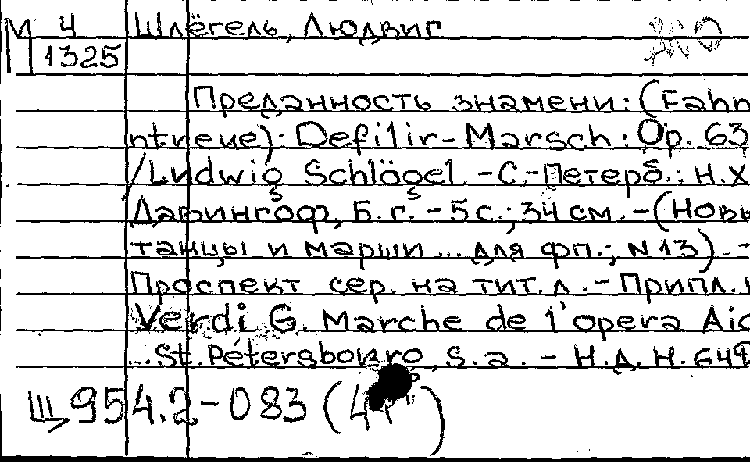 М 4 Шлёгель, Людвиг
1325
Преданность знамени: (Fahn
ntreue): Defilir-Marsch: Op. 63
/Ludwig Schlögel. - С.-Петерб.: Н.Х.
Давингоф, Б.г. - 5 с.; 34 см. - (Новы
танцы и марши ... для фп.; N 13). -
Проспект сер. на тит. л. - Припл.
Verdi G. Marche de l'opera Aid
...St. Pétersbourg, S.a. - Н.Д.Н. 649
Щ954.2-083